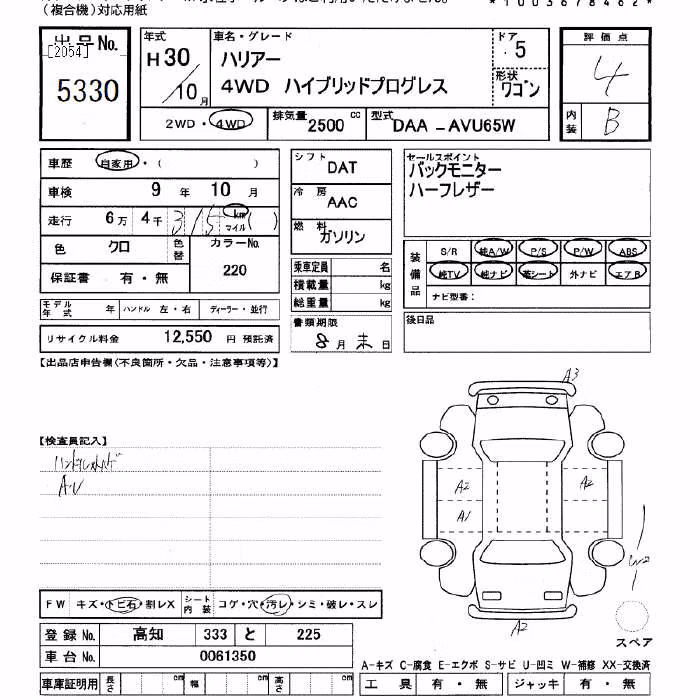 (複合機)対応用紙
*1003678462*
出品No. [2054] 5330
年式 H30/10月
車名・グレード ハリアー
4WD ハイブリッドプログレス
ドア 5
形状 ワゴン
2WD・4WD 排気量 2500cc 型式 DAA-AVU65W
評価点 4
内装 B
車歴 自家用・( )
車検 9年 10月
走行 6万 4千 315 km マイル ( )
色 クロ 色替 カラーNo. 220
保証書 有・無
モデル年式 年 ハンドル 左・右 ディーラー・並行
リサイクル料金 12,550 円 預託済
シフト DAT
冷房 AAC
燃料 ガソリン
乗車定員 名
積載量 kg
総重量 kg
書類期限
8月末日
セールスポイント
バックモニター
ハーフレザー
装備品 S/R 純A/W P/S P/W ABS
純TV 純ナビ 革シート 外ナビ エアB
ナビ型番:
後日品
【出品店申告欄(不良箇所・欠品・注意事項等)】
【検査員記入】
A3
A2 A2
A1
A2
スペア
FW キズ・トビ石・割レX シート内装 コゲ・穴・汚レ・シミ・破レ・スレ
登録No. 高知 333 と 225
車台No. 0061350
A-キズ C-腐食 E-エクボ S-サビ U-凹ミ W-補修 XX-交換済
車庫証明用 長さ cm 幅 cm 高さ cm 工具 有・無 ジャッキ 有・無